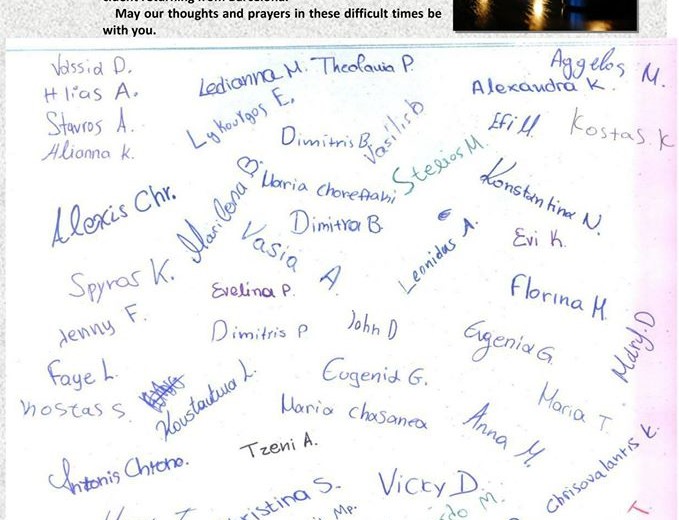 May our thoughts and prayers in these difficult times be
with you.
Vassia D.
Ledianna M.
Theofania P.
Aggelos M.
Hlias A.
Alexandra K.
Lykourgos E.
Stavros A.
Dimitris B.
Vasilis B
Efi M.
Kostas. K
Alianna K.
Stelios M.
Maria
Konstantina N.
Alexis Chr.
Marilena B.
Dimitra B
Vasia A
Leonidas A.
Evi K.
Spyros K.
Evelina P.
Florina M.
Jenny F.
Dimitris P
John D
Eugenia G.
Mary. D
Faye L.
Eugenia G.
Kostas S.
Konstantina L.
Maria
Maria T.
Anna M.
Tzeni A.
Antonis Chrono.
Chrisovalantis K.
Vicky D.
ristina S.
Mp.
do M.
T.